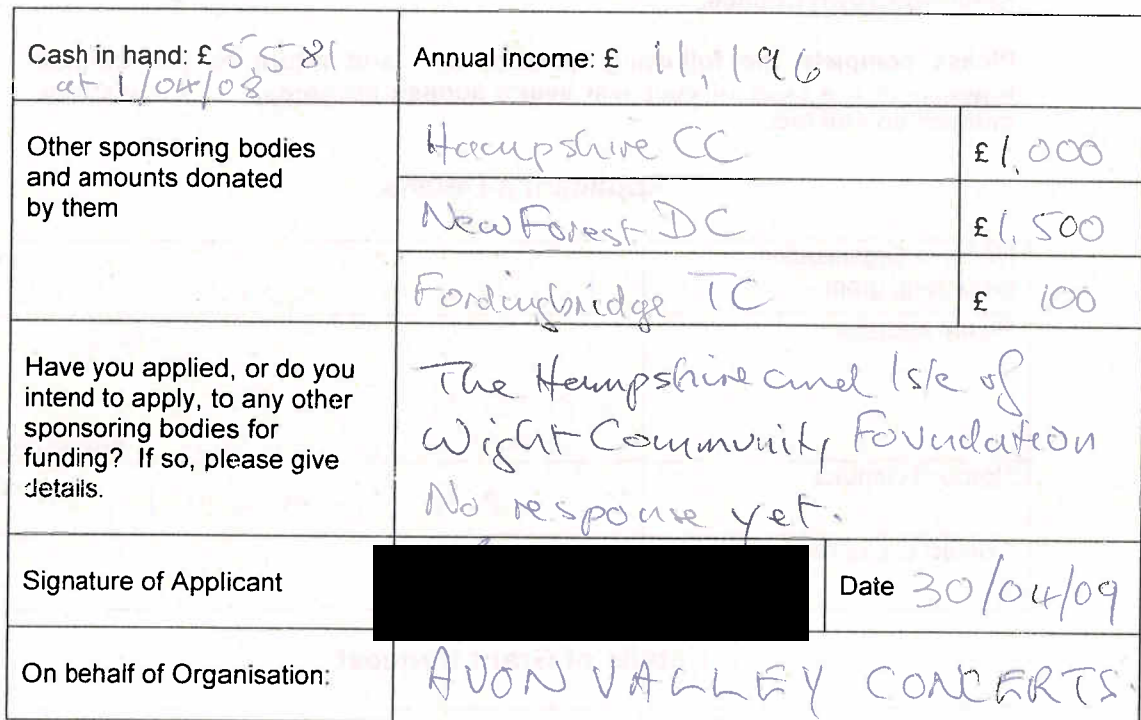 Cash in hand: £ 5581
at 1/04/08
Annual income: £ 11,196
Other sponsoring bodies
and amounts donated
by them
Hampshire CC £1,000
New Forest DC £1,500
Fordingbridge TC £ 100
Have you applied, or do you
intend to apply, to any other
sponsoring bodies for
funding? If so, please give
details.
The Hampshire and Isle of
Wight Community Foundation
No response yet.
Signature of Applicant
Date 30/04/09
On behalf of Organisation:
AVON VALLEY CONCERTS